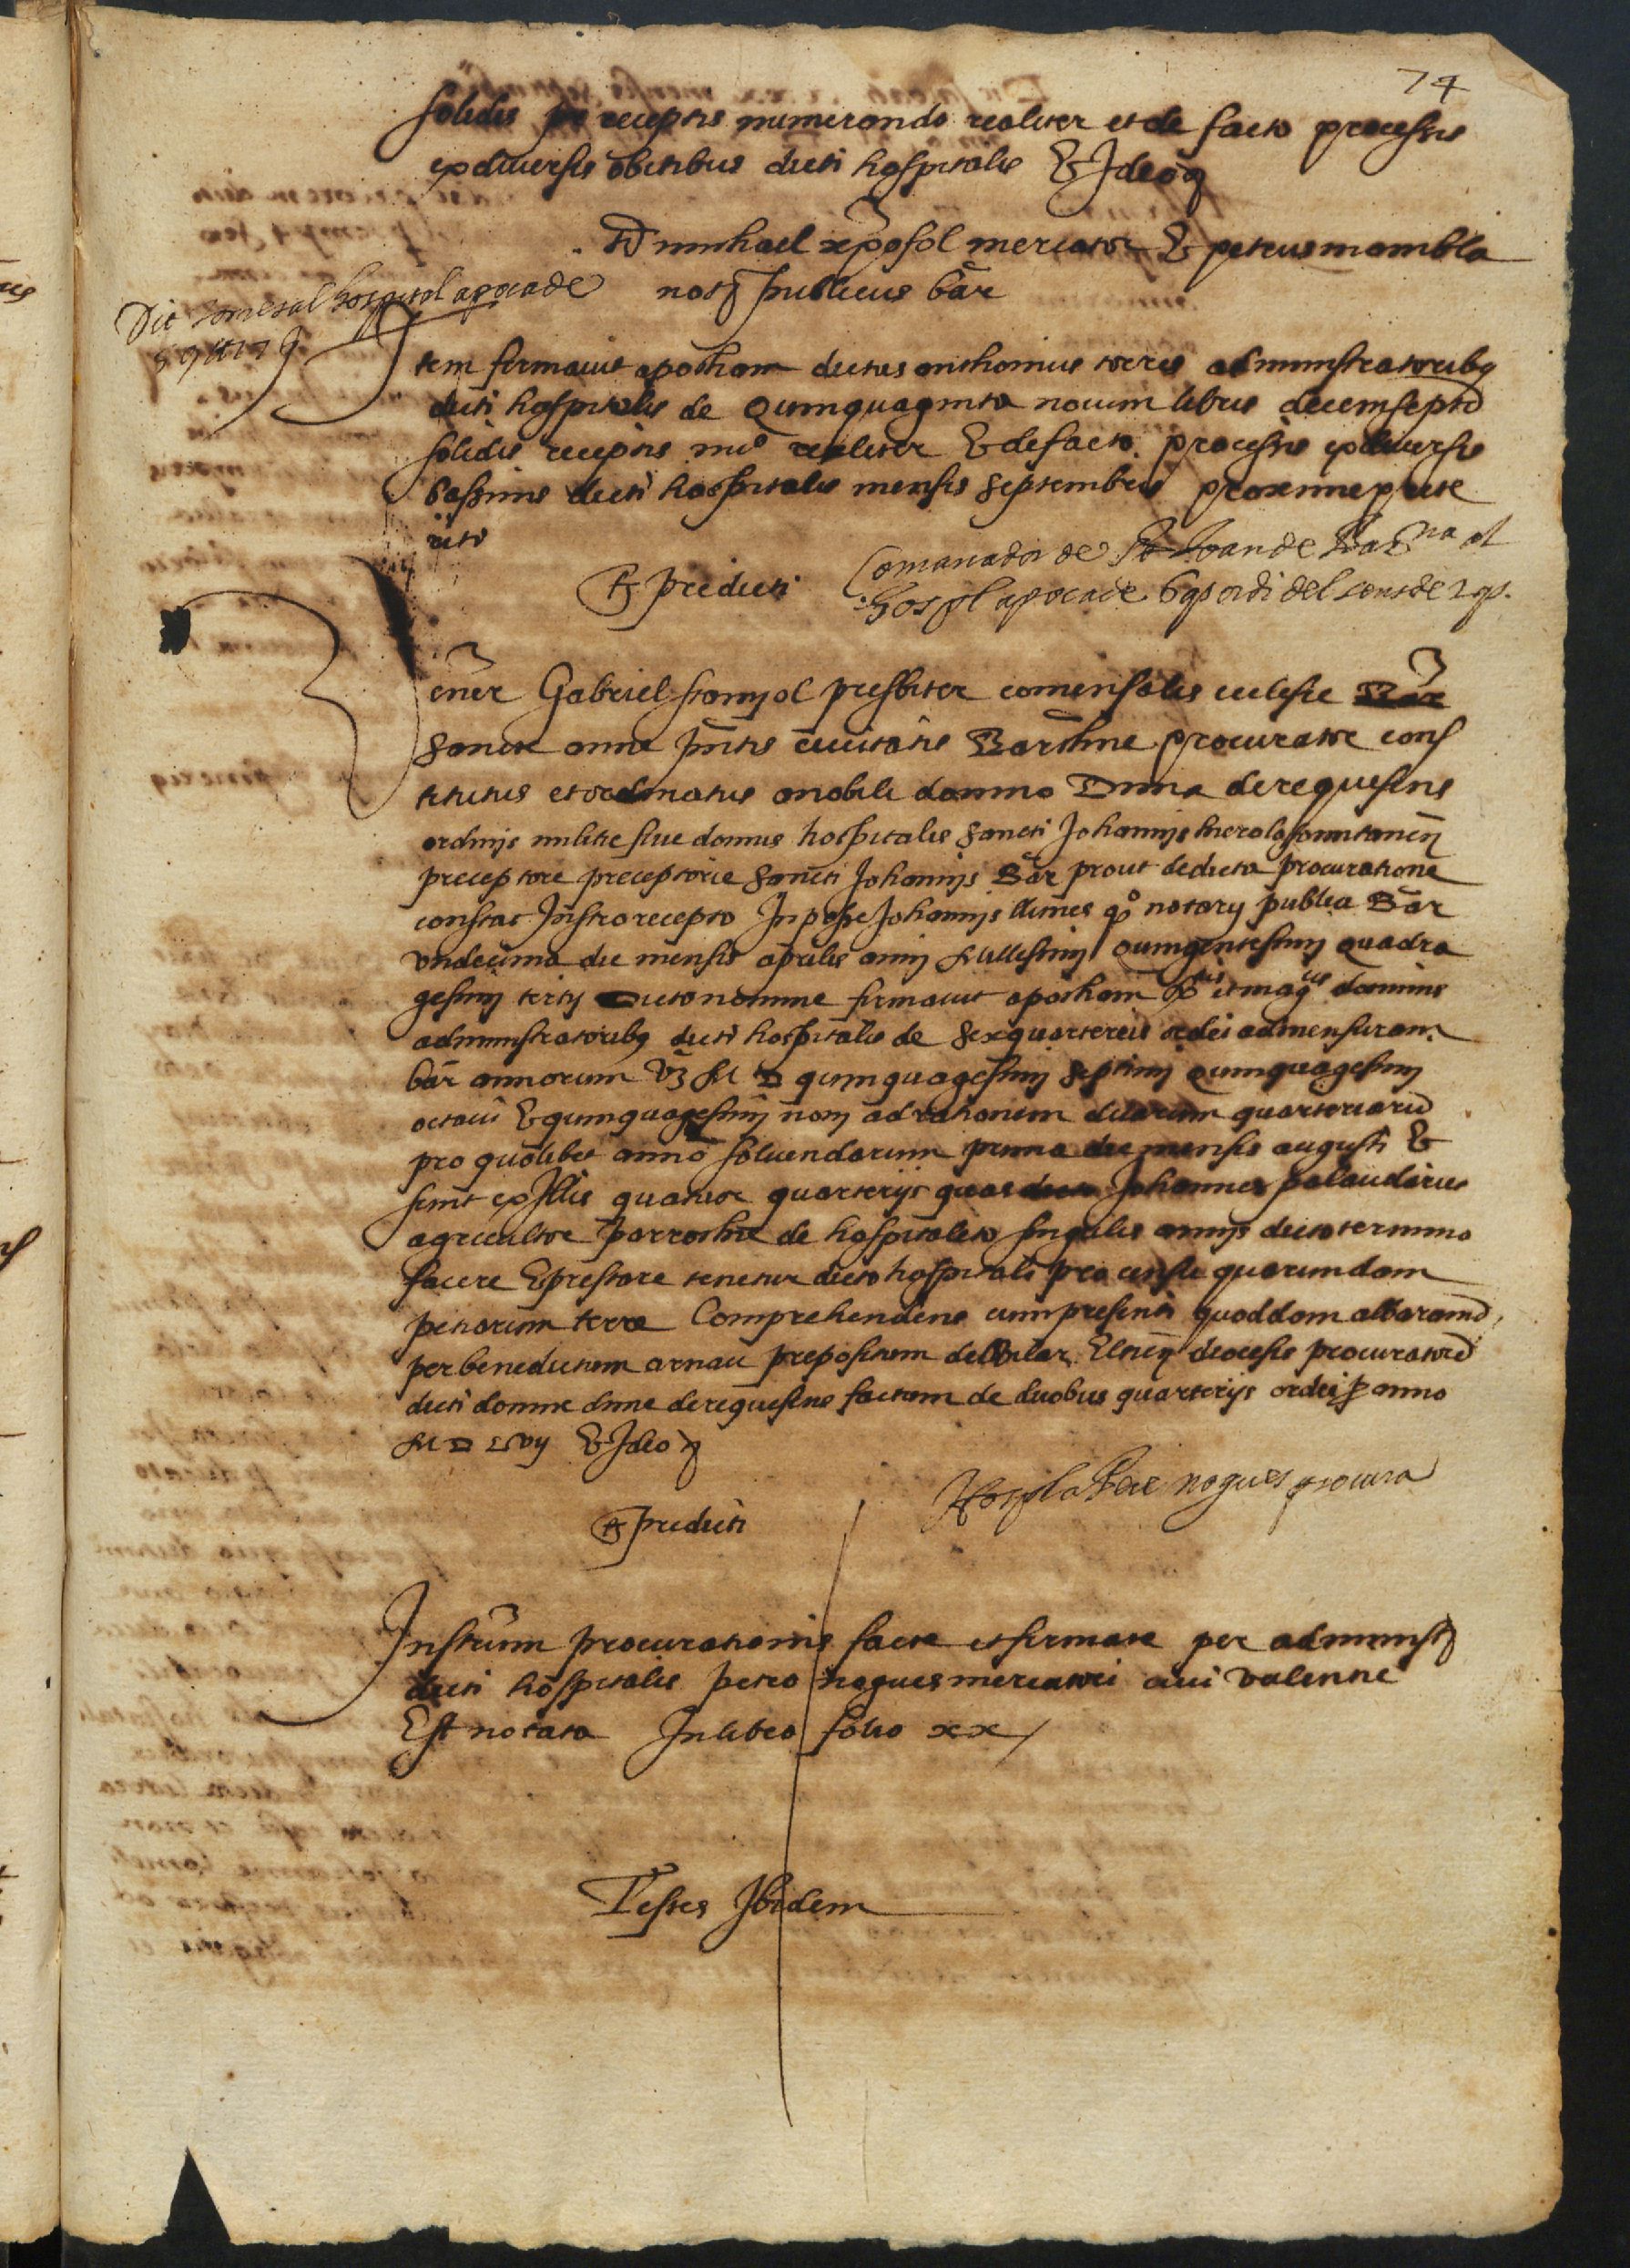 74
solidis receptis numerando realiter et de facto processis
ex diversis obitibus dicti hospitalis & Ideo q
Ts michael xpofol mercator & petrus mambla
not publicus bar
Dit torres al hospital apoca de
59 ll 17 s
Item firmavit apocham dictus anthonius torres administratoribq
dicti hospitalis de Quinquaginta novem libris decemseptem
solidis receptis nuo realiter & de facto processis ex diversis
bassinis dicti hospitalis mensis septembris proxime prete
riti
Ts predicti
Comanador de St Joan de Barna al
Hospl apoca de 6 qs ordi del cens de 2 qs.
Vener Gabriel stanyol presbiter comensalis ecclesie Bar
Sancte anne pntis civitatis Barchne procurator cons
titutus et ordinatus a nobili domino Dima de requesens
ordinis militie sive domus hospitalis Sancti Johannis hierosolimitaneq
preceptore preceptorie Sancti Johannis Bar prout de dicta procuratione
constat Instro recepto In posse Johannis llunes qo notary publica Bar
undecima die mensis aprilis anni Millesimi quingentesimi quadra
gesimi tertij Dicto nomine firmavit apocham Rdis et magcis dominis
administratoribq dicti hospitalis de sex quarteriis ordei ad mensuram
bar annorum vz M D quinquagesimi septimi quinquagesimi
octavi & quinquagesimi noni ad rationem duarum quarteriarum
pro quolibet anno solvendarum prima die mensis augusti &
sunt ex Illis quatuor quarterijs quas Johannes palaudarius
agricultor parrochie de hospitaleto singulis annis dicto termino
facere & prestare tenetur dicto hospitali pro censu quarumdam
petiarum terre Comprehendens cum presenti quoddam albaranum
per benedictum arnau prepositum del Vilar Elneq diocesis procuratorem
dicti domni dime de requesens factum de duobus quarterijs ordei p anno
M D Lvij & Ideo q
Ts predicti
Hospl a Pere nogues procura
Instrum procurationis facte et firmate per administ
dicti hospitalis petro nogues mercatori civi valentie
Est notata In libro folio xx
Testes Ibidem